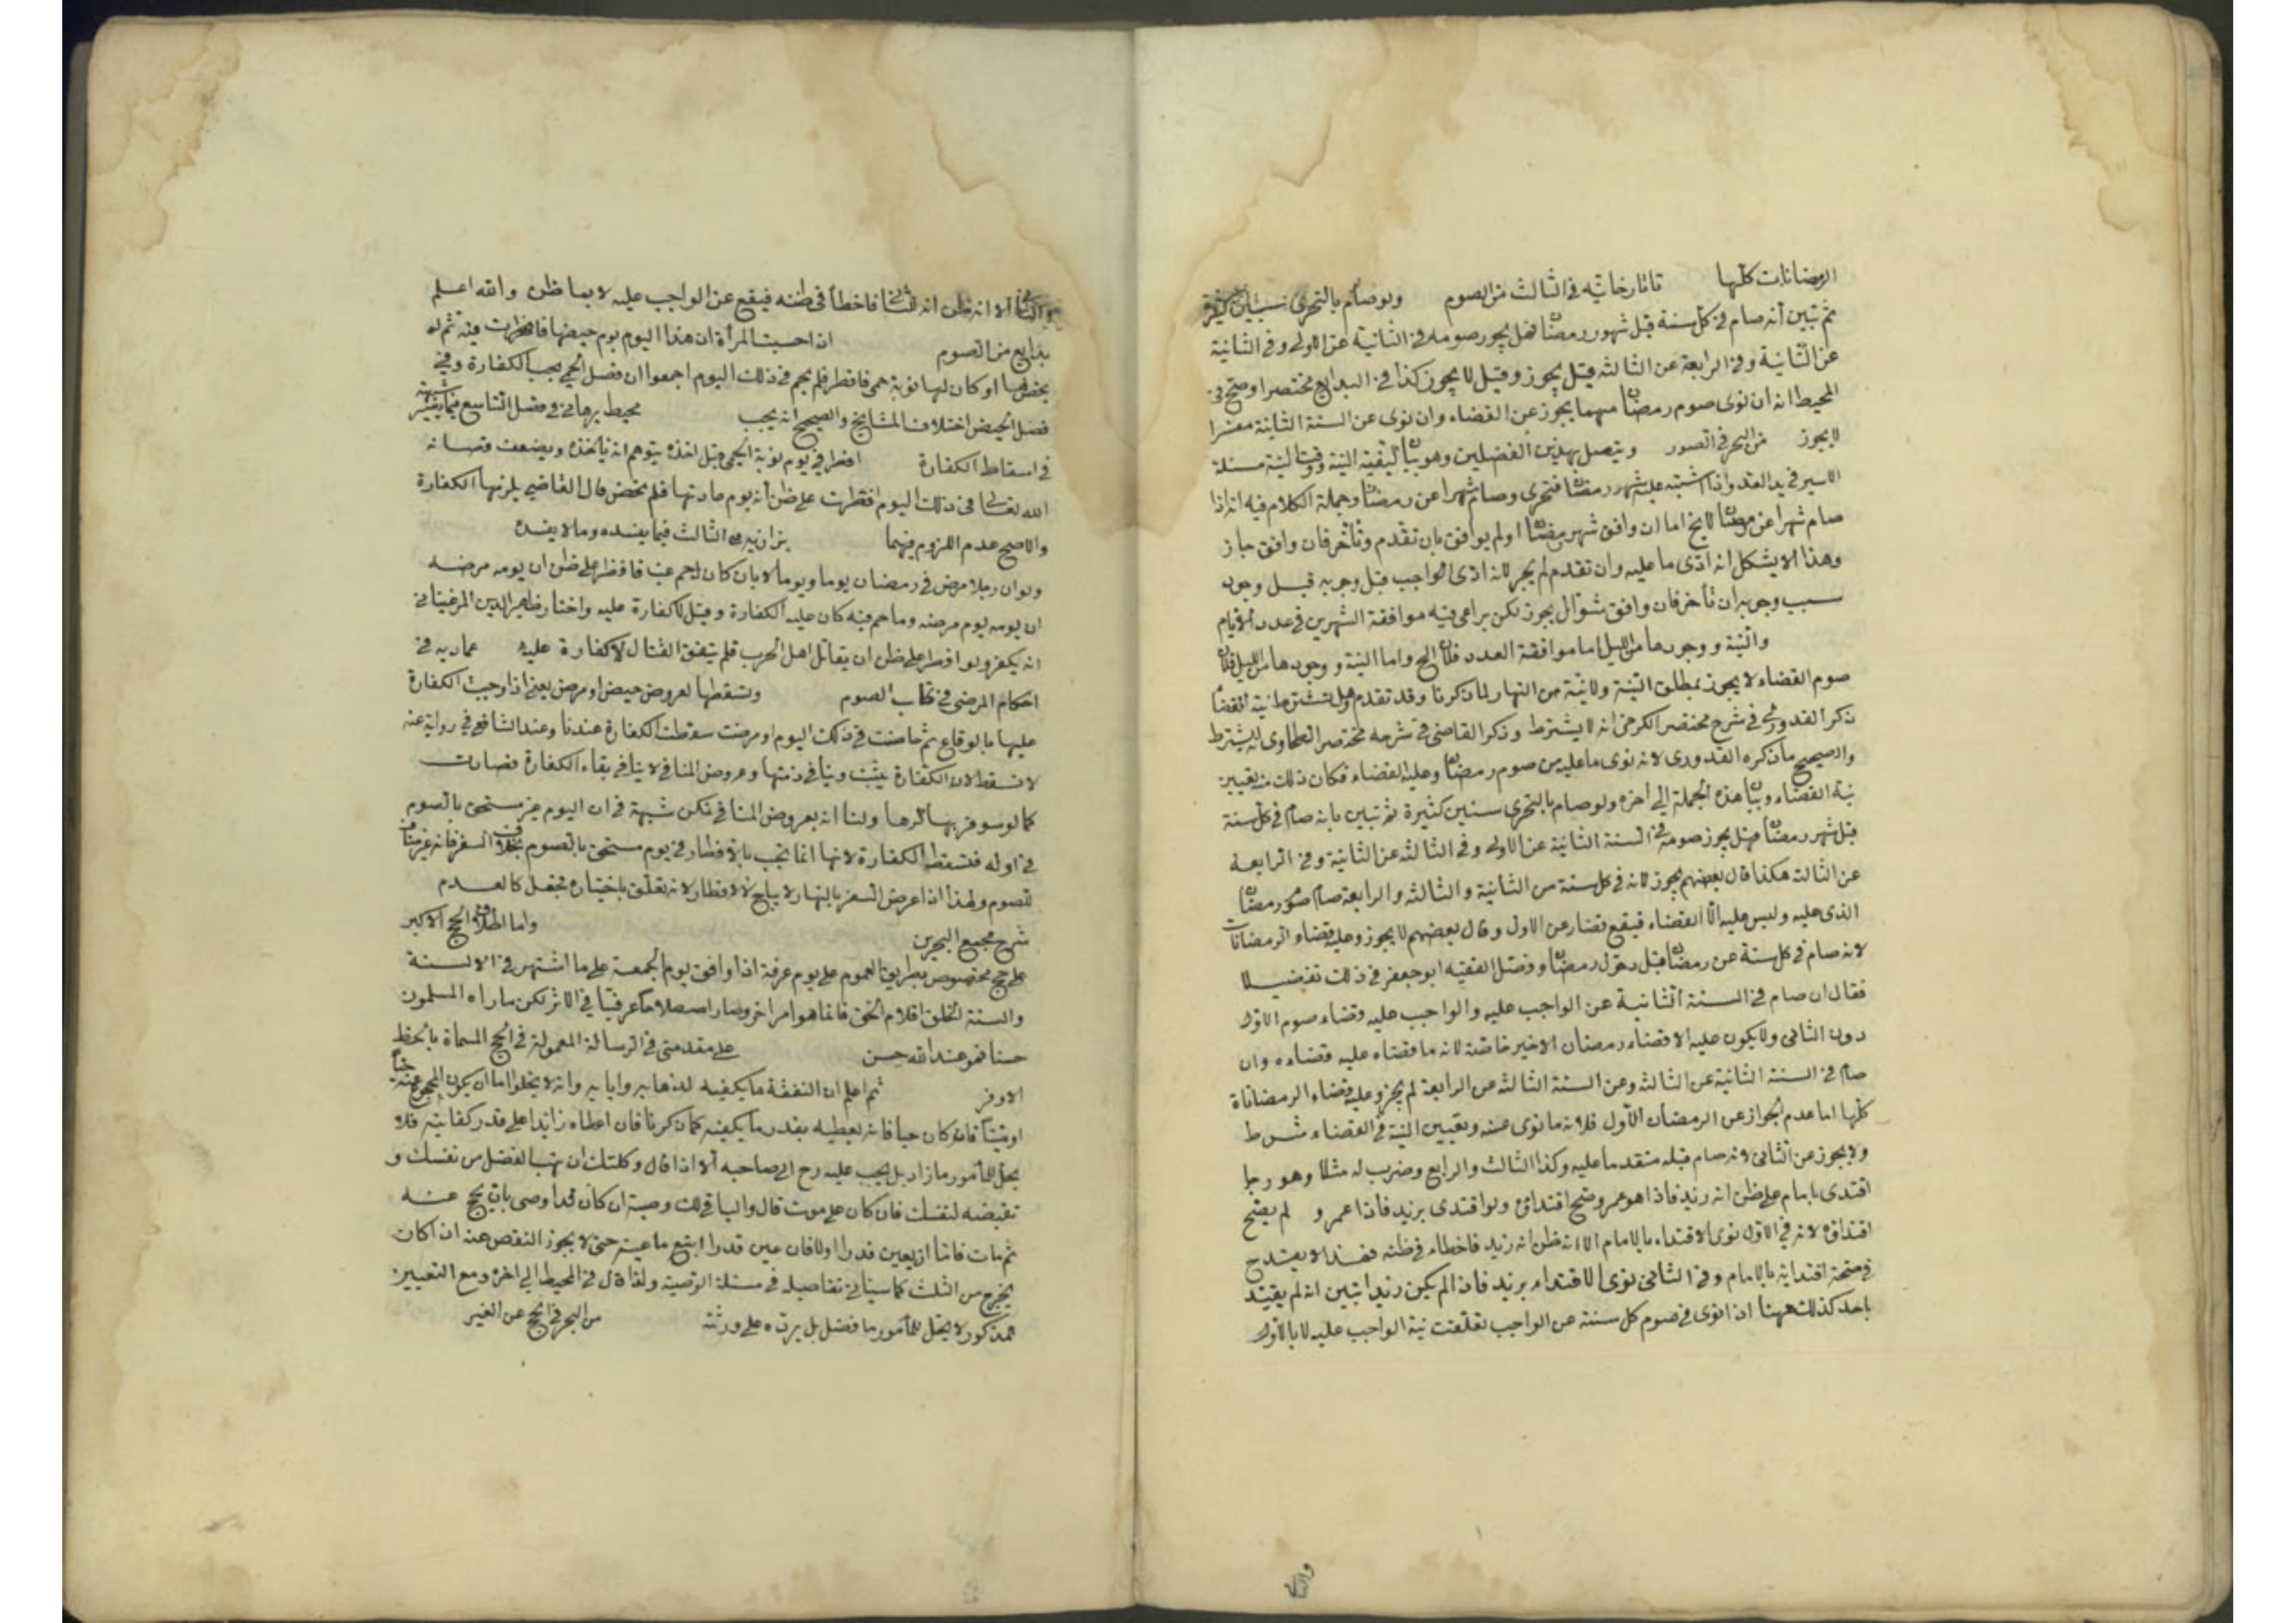 الرمضانات كلها تاتارخانيه في الثالث من الصوم ولو صام بالتحرى سنين كثيرة
ثم تبين أنه صام في كل سنة قبل شهور رمضان فهل يجوز صومه في الثانية عن الاولى وفي الثالثة
عن الثانية وفي الرابعة عن الثالثه قيل يجوز وقيل لا يجوز كذا في البدايع مختصرا وصحح في
المحيط انه ان نوى صوم رمضان مبهما يجوز عن القضاء وان نوى عن السنة الثانية مفسرا
لا يجوز من البحر في الصور ويتصل بهذين الفصلين وهو بيان كيفية النية ووقت النية مسئلة
الاسير في يد العدو اذا اشتبه عليه شهر رمضان فتحرى وصام شهرا عن رمضان وجملة الكلام فيه انه اذا
صام شهرا عن رمضان لا يخ اما ان وافق شهر رمضان او لم يوافق بان تقدم وتأخر فان وافق جاز
وهذا لا يشكل انه ادى ما عليه وان تقدم لم يجز لانه ادى الواجب قبل وجوبه قبل وجود
سبب وجوبه ان تأخر فان وافق شوال يجوز لكن يراعى فيه موافقة الشهرين في عدد الايام
والنية ووجودها من الليل اما موافقة العدد فلان الخ واما النية ووجودها من الليل فلان
صوم القضاء لا يجوز بمطلق النية ولا نية من النهار لما ذكرنا وقد تقدم وهل تشترط نية القضاء
ذكر القدوري في شرح مختصر الكرخى انه لا يشترط وذكر القاضى في شرحه مختصر الطحاوى انه يشترط
والصحيح ما ذكره القدورى لانه نوى ما عليه من صوم رمضان وعليه القضاء فكان ذلك منه تعيين
نية القضاء وبيان هذه الجملة الى آخره ولو صام بالتحرى سنين كثيرة ثم تبين بانه صام في كل سنة
قبل شهر رمضان فهل يجوز صومه في السنة الثانية عن الاولى وفي الثالثه عن الثانية وفي الرابعة
عن الثالثة هكذا قال بعضهم يجوز لانه في كل سنة من الثانية والثالثه والرابعة صام صوم رمضان
الذى عليه وليس عليه الا القضاء فيقع قضاء عن الاول وقال بعضهم لا يجوز وعليه قضاء الرمضانات
لانه صام في كل سنة عن رمضان قبل دخول رمضان وفصل الفقيه ابو جعفر في ذلك تفصيلا
فقال ان صام في السنة الثانية عن الواجب عليه والواجب عليه قضاء صوم الاول
دون الثانى ولا يكون عليه الا قضاء رمضان الاخير خاصة لانه ما قضاه عليه قضاءه وان
صام في السنة الثانية عن الثالثه وعن السنة الثالثه عن الرابعة لم يجز وعليه قضاء الرمضانات
كلها اما عدم الجواز عن الرمضان الاول فلانه ما نوى عنه وتعيين النية في القضاء شرط
ولا يجوز عن الثانى لانه صام قبله متقدما عليه وكذا الثالث والرابع وضرب له مثلا وهو رجل
اقتدى بامام على ظن انه زيد فاذا هو عمرو صح اقتداؤه ولو اقتدى بزيد فاذا عمرو لم يصح
اقتداؤه لانه في الاول نوى الاقتداء بالامام الا انه ظن انه زيد فاخطاء في ظنه فهذا لا يقدح
في صحة اقتدائه بالامام وفي الثانى نوى الاقتداء بزيد فاذا لم يكن زيدا تبين انه لم يقتد
باحد كذلك ههنا اذا نوى في صوم كل سنة عن الواجب تعلقت نية الواجب عليه لا بالاول
والثا
والثانى الا انه ظن انه للثانى فاخطأ في ظنه فيقع عن الواجب عليه لا بما ظن والله اعلم
بدايع من الصوم اذا احسبت المرأة ان هذا اليوم يوم حيضها فافطرت فيه ثم لم
تحض او كان لها نوبة حمى فافطر فلم يحم في ذلك اليوم اجمعوا ان فصل الحمى يجب الكفارة وفي
فصل الحيض اختلاف المشايخ والصحيح انه يجب محيط برهانى في فصل التاسع فيما يصير شبهة
في اسقاط الكفارة افطر في يوم نوبة الحمى قبل اخذه يتوهم انه يأخذه ويضعف
الله تعالى في ذلك اليوم افطرت على ظن أنه يوم عادتها فلم تحض قال القاضى يلزمها الكفارة
والاصح عدم اللزوم فيهما بزازيه في الثالث فيما يفسده وما لا يفسده
ولو ان رجلا مرض في رمضان يوما ويوما لا بان كان به حمى غب فافطر على ظن ان يومه مرضه
ان يومه يوم مرضه وما حم فيه كان عليه الكفارة وقيل لا كفارة عليه واختار ظهير الدين المرغينانى
انه يكفر ولو افطر على ظن ان يقاتل اهل الحرب فلم يتفق القتال لا كفارة عليه عماديه في
احكام المرضى في كتاب الصوم وتسقطها لعروض حيض او مرض يعنى اذا وجبت الكفارة
عليها بالوقاع ثم حاضت في ذلك اليوم او مرضت سقطت الكفارة عندنا وعند الشافعى في رواية عنه
لا تسقط لان الكفارة يثبت دينا في ذمتها وعروض المنافى لا ينافى بقاء الكفارة فصارت
كما لو سوفر بها كرها ولنا انه بعروض المنافى تمكن شبهة في ان اليوم غير مستحق بالصوم
في اوله فتسقط الكفارة لانها انما تجب بالافطار في يوم مستحق بالصوم بخلاف السفر فانه غير مناف
للصوم ولهذا اذا عرض السفر بالنهار لا يباح الافطار لانه تعلق باختياره فجعل كالعدم
شرح مجمع البحرين واما اطلاق الحج الاكبر
على حج مخصوص بطريق العموم على يوم عرفة اذا وافق يوم الجمعة على ما اشتهر في الالسنة
والسنة الخلق اقلام الحق فانما هو امر اخر وصار اصطلاحا عرفيا في الاثر لكن ما راه المسلمون
حسنا فهو عند الله حسن على مقدمتى في الرسالة المعمولة في الحج المسماة بالحظ
الاوفر ثم اعلم ان النفقة ما يكفيه لذهابه وايابه وانه لا يخلوا اما ان يكون المحجوج عنه حيا
او ميتا فان كان حيا فانه يعطيه بقدر ما يكفيه كما ذكرنا فان اعطاه زائدا على قدر كفايته فلا
يحل للمأمور ما زاد بل يجب عليه رده الى صاحبه الا اذا قال وكلتك ان تهب الفضل من نفسك و
تقبضه لنفسك فان كان على موت قال والباقى لك وصية ان كان قد اوصى بان يحج عنه
ثم مات فاما ان يعين قدرا اولا فان عين قدرا اتبع ما عينه حتى لا يجوز النقص عنه اذا كان
يخرج من الثلث كما سيأتى تفاصيله في مسئلة الوصية ولذا قال في المحيط الى اخره ومع التعيين
المذكور لا يحل للمأمور ما فضل بل يرده على ورثته من البحر في الحج عن الغير